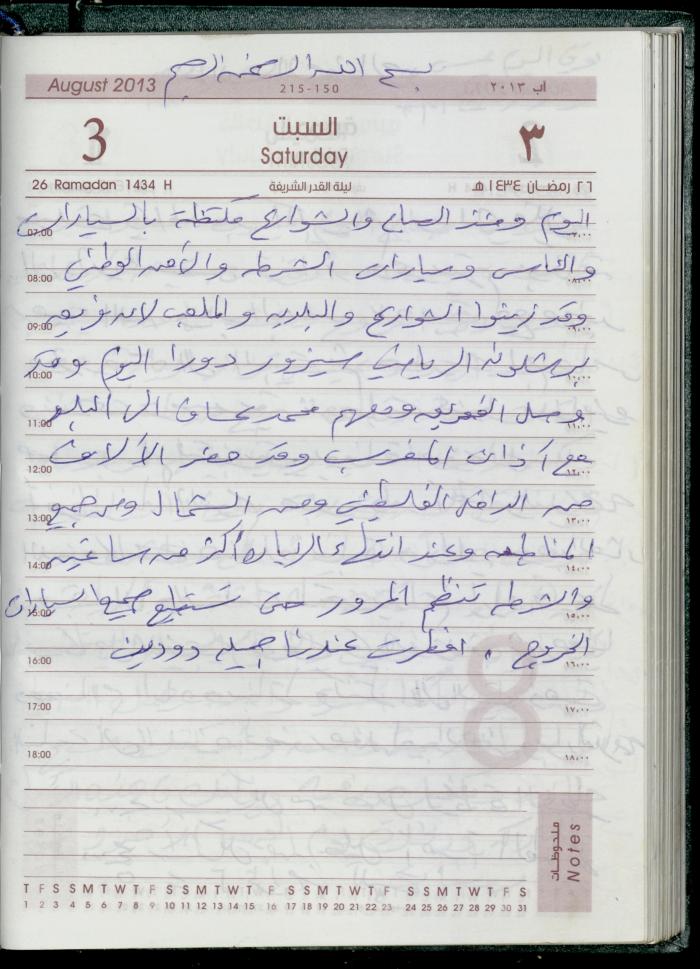 بسم الله الرحمن الرحيم
August 2013 215-150 اب ٢٠١٣
3 السبت ٣
Saturday
26 Ramadan 1434 H ليلة القدر الشريفة ٢٦ رمضان ١٤٣٤ هـ
اليوم ومنذ الصباح والشوارع مكتظة بالسيارات
07:00 ٧,٠٠
والناس وسيارات الشرطه والأمن الوطني
08:00 ٨,٠٠
وقد زينوا الشوارع والبلديه والملعب لان فريق
09:00 ٩,٠٠
برشلونه الرياضي سيزور دورا اليوم وقد
10:00 ١٠,٠٠
وصل الفريق ومعهم محمد عساف الى الملعب
11:00 ١١,٠٠
مع آذان المغرب وقد حضر الآلاف
12:00 ١٢,٠٠
من الداخل الفلسطيني ومن الشمال ومن جميع
13:00 ١٣,٠٠
المناطق وعند انتهاء الزياره أكثر من ساعتين
14:00 ١٤,٠٠
والشرطه تنظم المرور حتى تستطيع جميع السيارات
15:00 ١٥,٠٠
الخروج . افطرت عندنا جميله دودين
16:00 ١٦,٠٠
17:00 ١٧,٠٠
18:00 ١٨,٠٠
8
ملحوظات
Notes
T F S S M T W T F S S M T W T F S S M T W T F S S M T W T F S
1 2 3 4 5 6 7 8 9 10 11 12 13 14 15 16 17 18 19 20 21 22 23 24 25 26 27 28 29 30 31